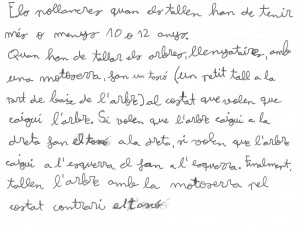 Els pollancres quan els tallen han de tenir
més o menys 10 o 12 anys.
Quan han de tallar els arbres, llenyataires, amb
una motoserra, fan un toxó (un petit tall a la
part de baix de l'arbre) al costat que volen que
caigui l'arbre. Si volen que l'arbre caigui a la
dreta fan el toxó a la dreta, si volen que l'arbre
caigui a l'esquerra el fan a l'esquerra. Finalment,
tallen l'arbre amb la motoserra pel
costat contrari